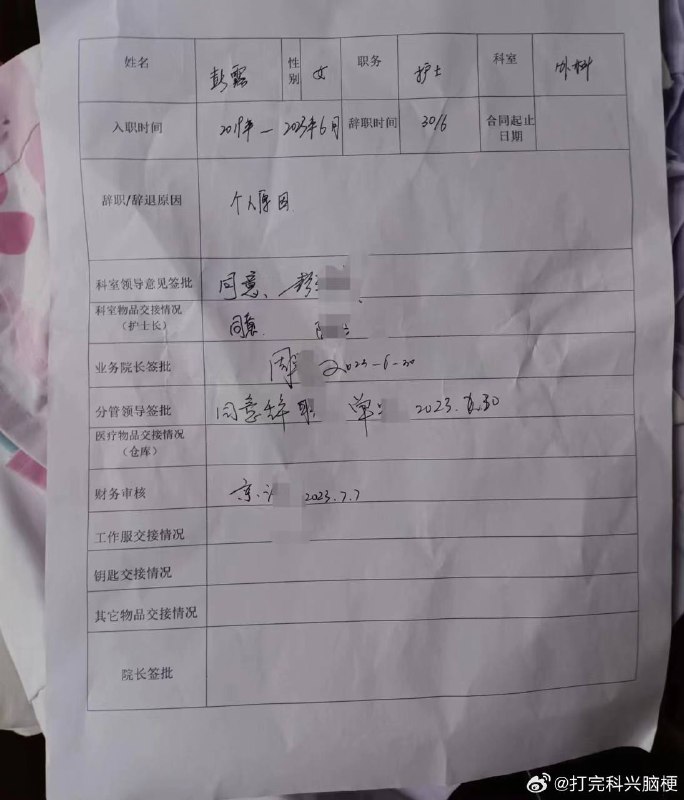 姓名 彭露 性别 女 职务 护士 科室 外科
入职时间 2019年－2023年6月 辞职时间 30/6 合同起止日期
辞职/辞退原因 个人原因
科室领导意见签批 同意、彭
科室物品交接情况（护士长） 同意.
业务院长签批 周 2023-6-30
分管领导签批 同意辞职 单 2023.6.30
医疗物品交接情况（仓库）
财务审核 2023.7.7
工作服交接情况
钥匙交接情况
其它物品交接情况
院长签批
@打完科兴脑梗